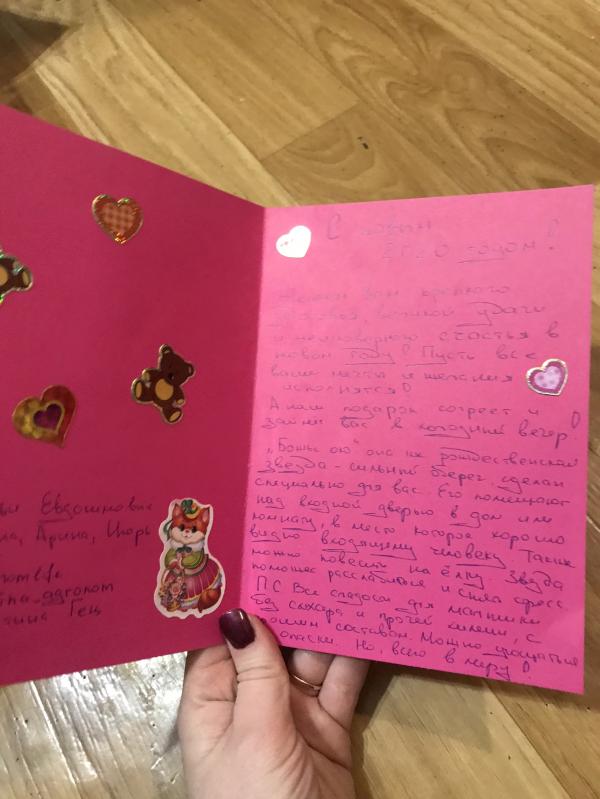 С новым
2020 годом!
Желаем Вам крепкого
здоровья, великой удачи
и неимоверного счастья в
новом году! Пусть все
ваши мечты и желания
исполнятся!
А наш подарок согреет и
займёт вас в холодный вечер!
"Божье око" она же рождественская
звезда - сильный оберег, сделан
специально для вас. Его помещают
над входной дверью в дом или
комнату, в место которое хорошо
видно входящему человеку. Также
можно повесить на ёлку. Звезда
поможет расслабиться и снять стресс.
ПС Все сладости для мамочки
без сахара и прочей химии, с
хорошим составом. Можно угощаться
без опаски. Но, всего в меру!
Евдокимович
на, Арина, Игорь
агроном
Гец